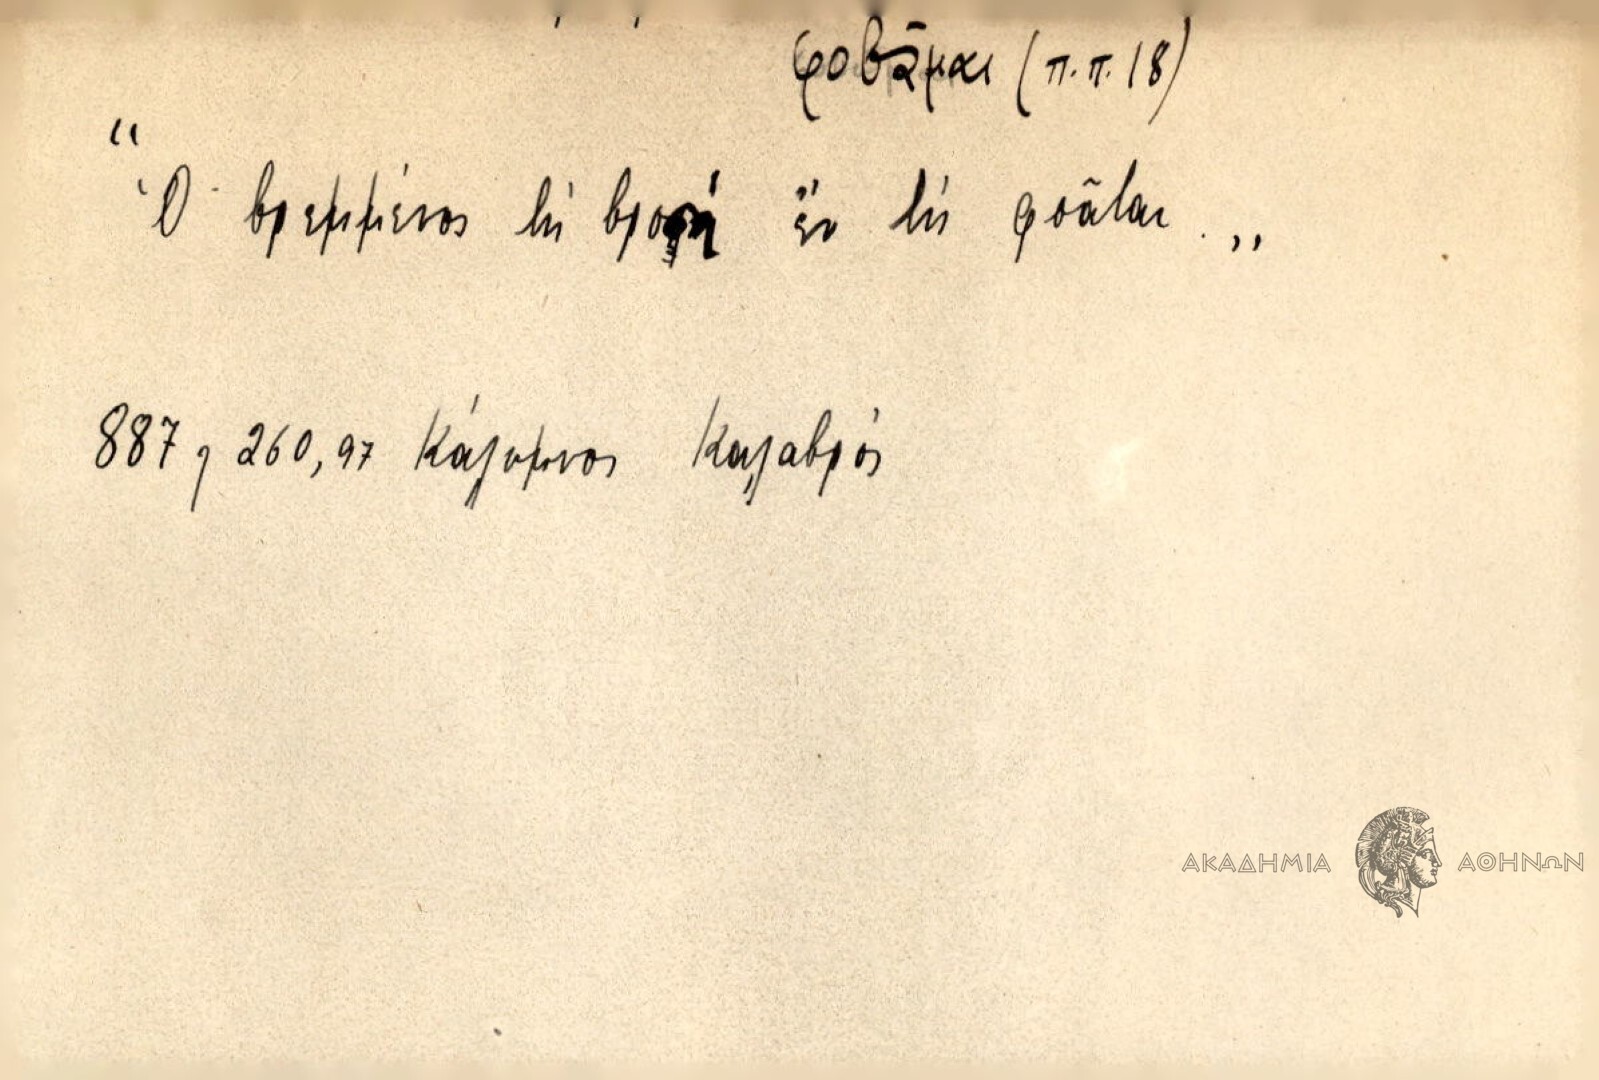 φοβᾶμαι (π.π. 18)
“
Ὁ βρεμμένος τὴ βροχὴ ἐν τὴ φοᾶται.„
887, 260, 97 Κάλυμνος Καλαβρός
ΑΚΑΔΗΜΙΑ ΑΘΗΝΩΝ